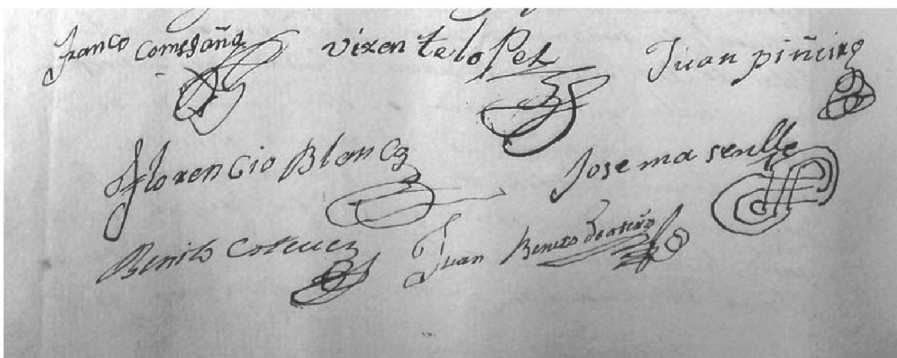 Franco Comesaña Vizente lopez Juan piñeiro
Florencio Blanco Jose ma senlle
Benito Juan Benito